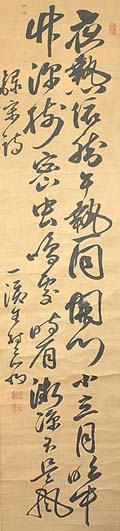 夜熱依然午熱同開門小立月明中
竹深樹密虫鳴處時有微涼不是風
録宋詩